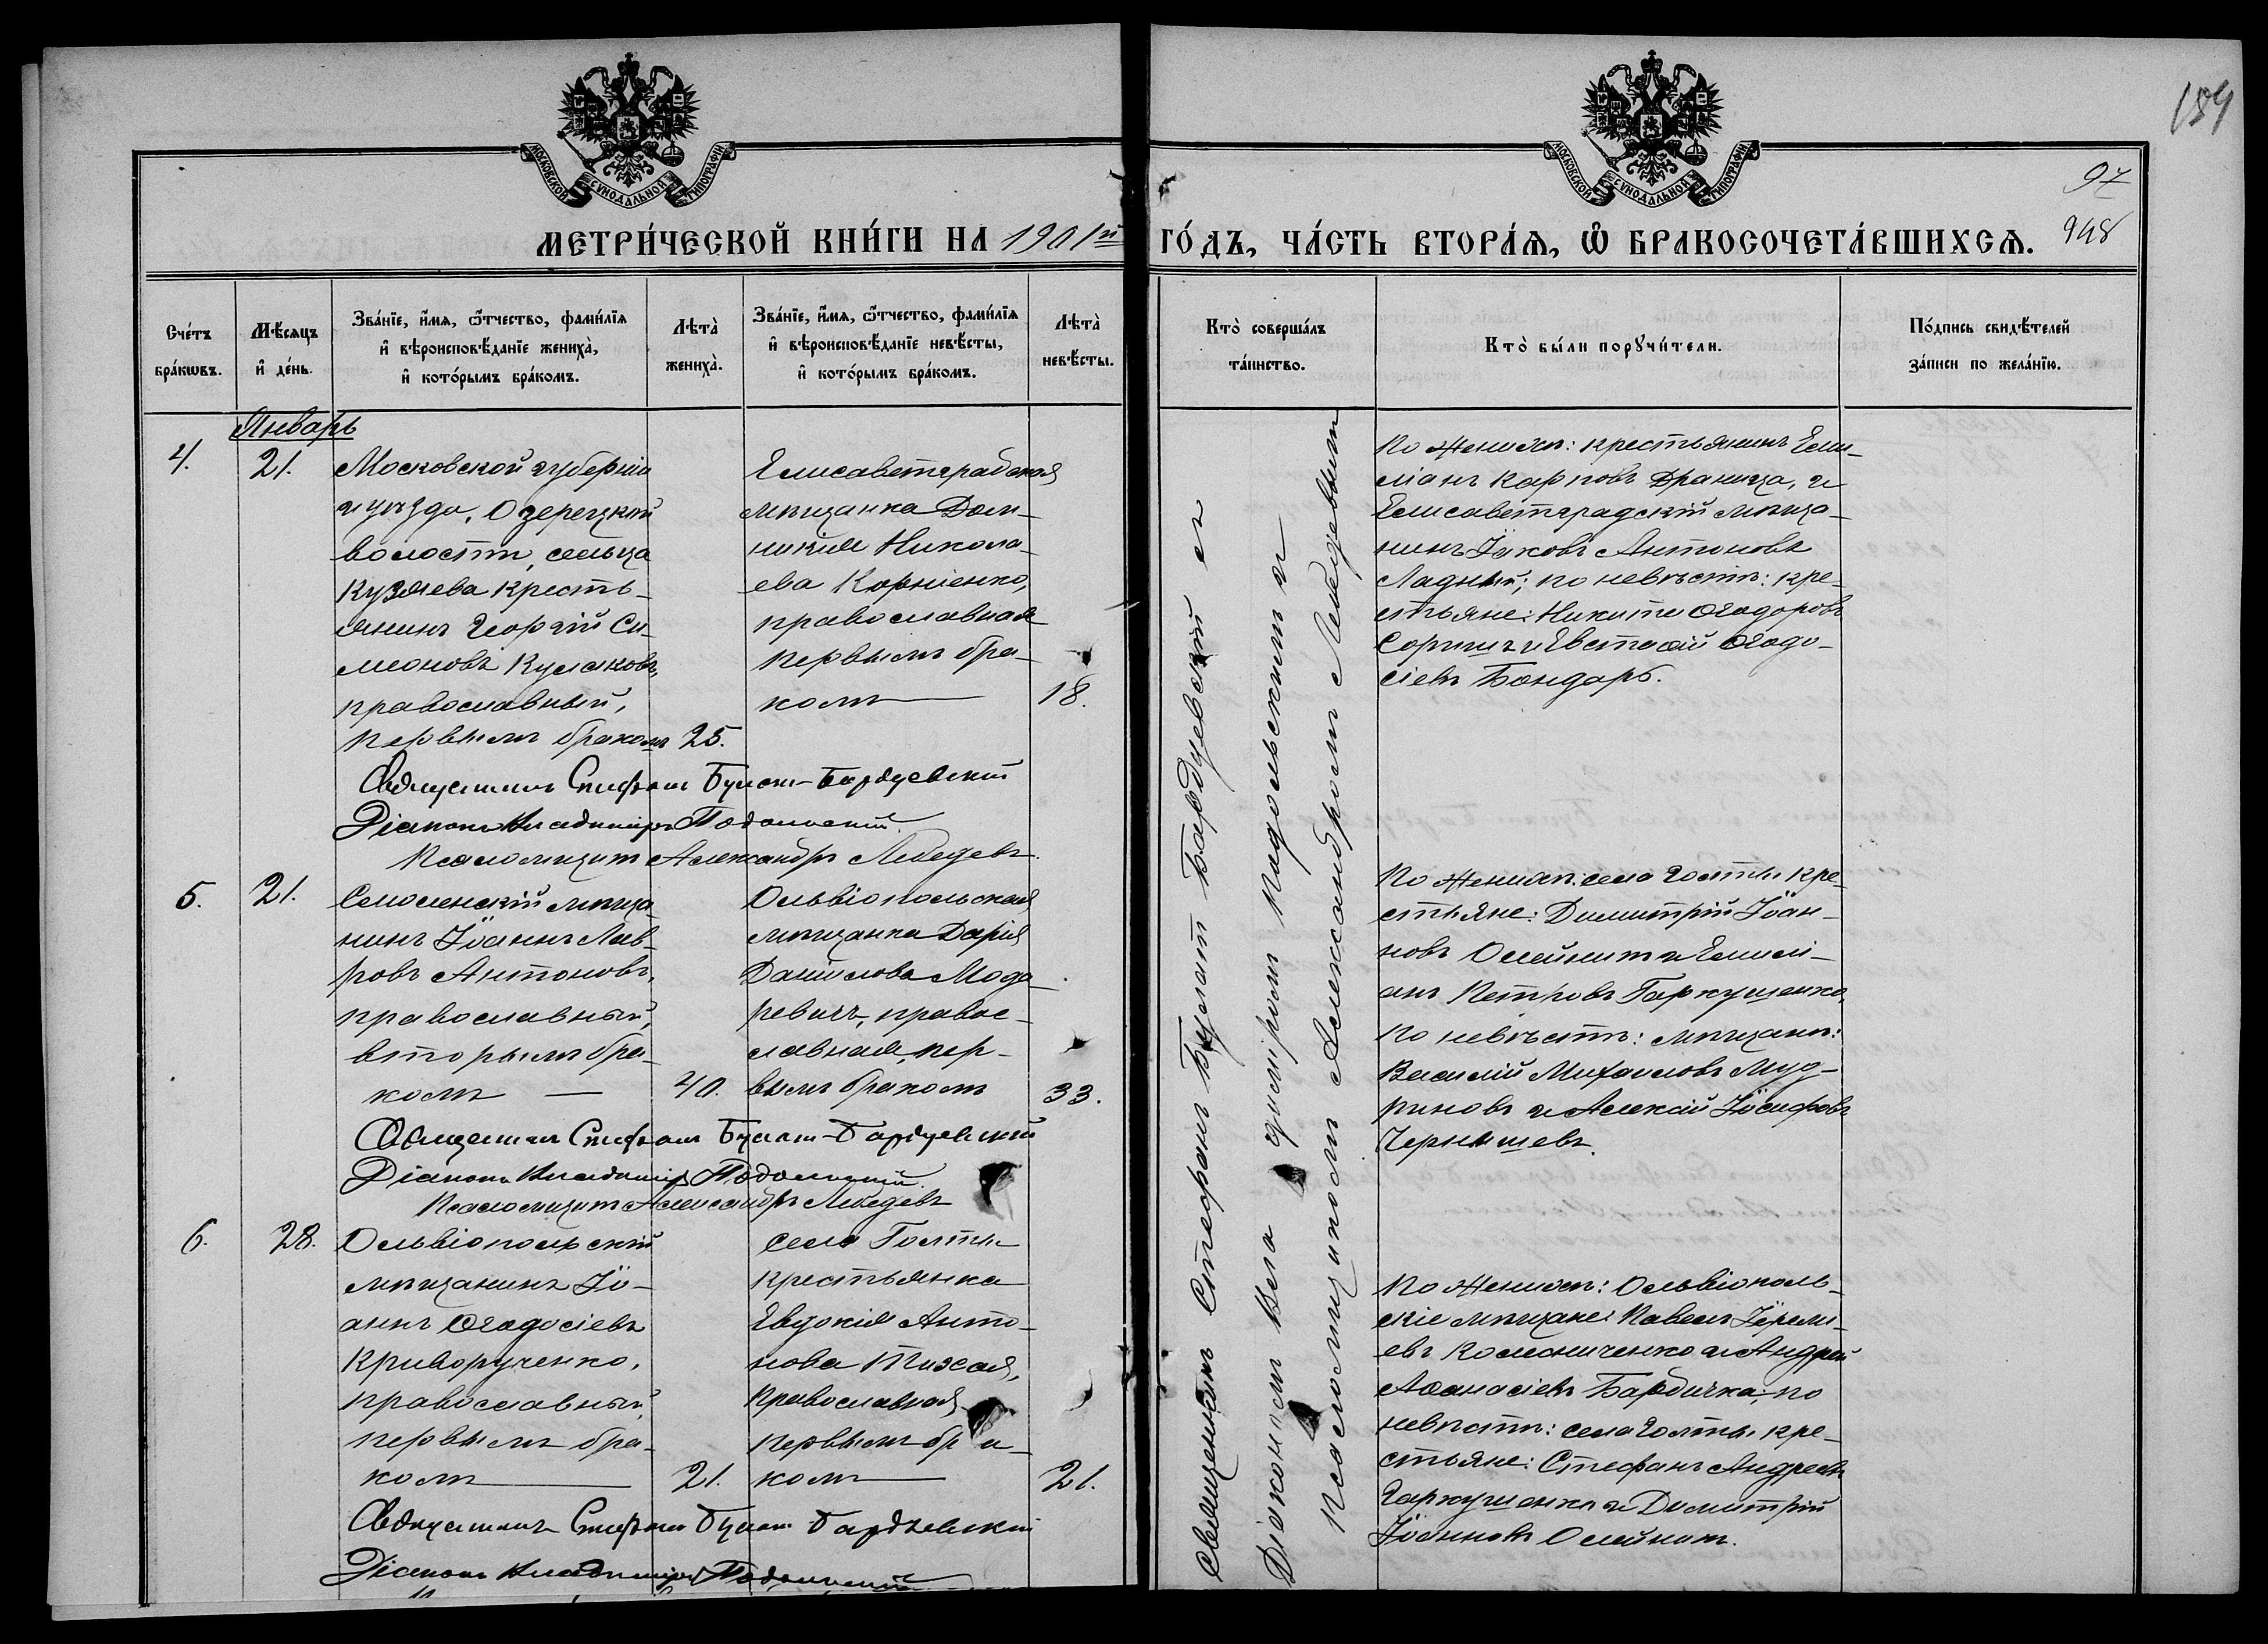 159
МОСКОВСКОЙ СѴНОДАЛЬНОЙ ТИПОГРАФІИ
МОСКОВСКОЙ СѴНОДАЛЬНОЙ ТИПОГРАФІИ
97
948
МЕТРИ́ЧЕСКОЙ КНИ́ГИ НА 1901й ГО́ДЪ, ЧА́СТЬ ВТОРА́Я, Ѡ БРАКОСОЧЕТА́ВШИХСЯ.
Сче́тъ
бра́кѡвъ.
Мѣ́сяцъ
и҆ де́нь.
Зва́нїе, и҆́мя, ѻ҆́тчество, фами́лїя
и҆ вѣроисповѣ́данїе жениха̀,
и҆ кото́рымъ бра́комъ.
Лѣта̀
жениха̀.
Зва́нїе, и҆́мя, ѻ҆́тчество, фами́лїя
и҆ вѣроисповѣ́данїе невѣ́сты,
и҆ кото́рымъ бра́комъ.
Лѣта̀
невѣ́сты.
Кто̀ соверша́лъ
та́инство.
Кто̀ бы́ли порꙋчи́тели.
По́дпись свидѣ́телей
за́писи по жела́нїю.
Январь
4.
21.
Московской губерніи
и уѣзда, Озерецкой
волости, сельца
Кузяева кресть-
янинъ Георгій Си-
меоновъ Кулаковъ,
православный,
первымъ бракомъ
25.
Елисаветградская
мѣщанка Дом-
никія Никола-
ева Корніенко,
православная
первымъ бра-
комъ
18.
По женихѣ: крестьянинъ Еми-
ліанъ Карповъ Драница, и
Елисаветградскій мѣща-
нинъ Іаковъ Антоновъ
Ладный; по невѣстѣ: кре-
стьяне: Никита Ѳеодоровъ
и Евстаѳій Ѳеодо-
сіевъ Бондарь.
Священникъ Стефанъ Булат-Бардуевскій
Діаконъ Владиміръ Подольскій.
Псаломщикъ Александръ Лебедевъ.
5.
21.
Смоленскій мѣща-
нинъ Іоаннъ Лав-
ровъ Антоновъ,
православный,
вторымъ бра-
комъ
40.
Ольвіопольская
мѣщанка Дарія
Даніилова Мода-
ревичъ, правос-
лавная, пер-
вымъ бракомъ
33.
По женихѣ: села Голты кре-
стьяне: Димитрій Іоан-
новъ Олейникъ и Емилі-
анъ Петровъ Гаркушенко,
по невѣстѣ: мѣщане:
Василій Михаиловъ Муд-
риновъ и Алексій Іосифовъ
Чернышевъ.
Священникъ Стефанъ Булат-Бардуевскій
Діаконъ Владиміръ Подольскій.
Псаломщикъ Александръ Лебедевъ
6.
28.
Ольвіопольскій
мѣщанинъ Іо-
аннъ Ѳеодосіевъ
Криворученко,
православный,
первымъ бра-
комъ
21.
села Голты
крестьянка
Евдокія Анто-
нова Тихая,
православная
первымъ бра-
комъ
21.
По женихѣ: Ольвіополь-
скіе мѣщане: Павелъ Іереми-
евъ Колесниченко и Андрей
Аѳанасіевъ Бардичка; по
невѣстѣ: села Голты кре-
стьяне: Стефанъ Андреевъ
Гаркушенко и Димитрій
Іоанновъ Олейникъ.
Священникъ Стефанъ Булат-Бардуевскій
Діаконъ Владиміръ Подольскій
Священникъ Стефанъ Булат Бардуевскій съ
Діакономъ Владиміромъ Подольскимъ и
Псаломщикомъ Александромъ Лебедевымъ